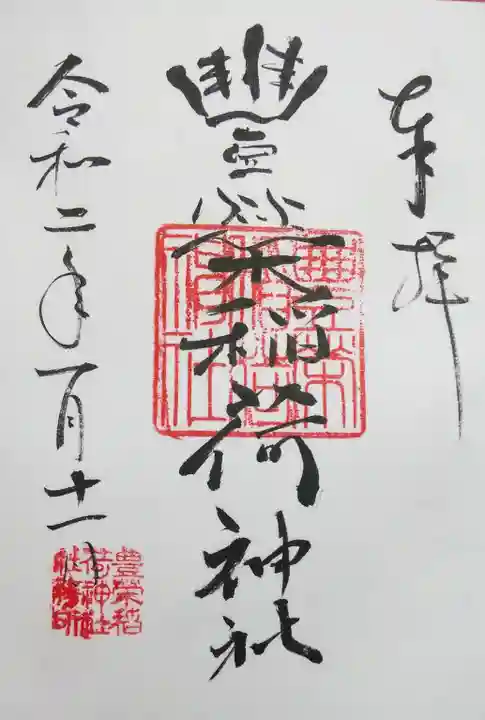 奉拝
豐榮稲荷神社
令和二年一月十一日
豊栄稲
荷神社
社務所